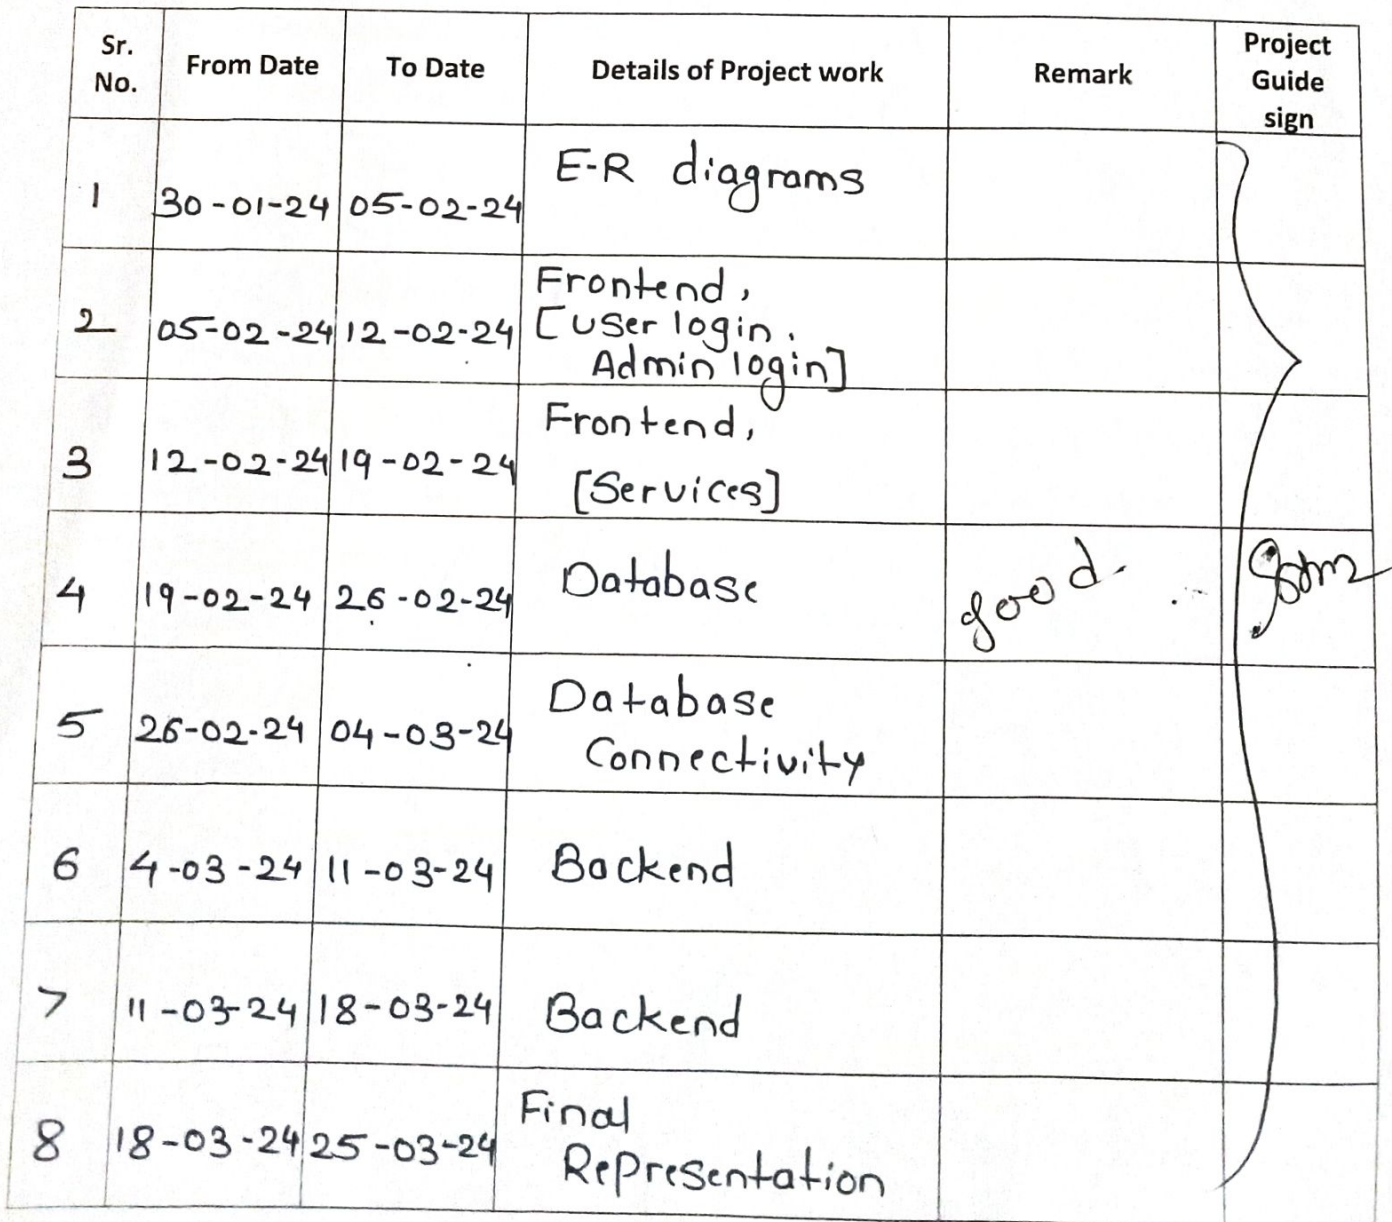 Sr. No. From Date To Date Details of Project work Remark Project Guide sign
1 30-01-24 05-02-24 E-R diagrams
2 05-02-24 12-02-24 Frontend,
[User login.
Admin login]
3 12-02-24 19-02-24 Frontend,
[Services]
4 19-02-24 26-02-24 Database good.
5 26-02-24 04-03-24 Database
Connectivity
6 4-03-24 11-03-24 Backend
7 11-03-24 18-03-24 Backend
8 18-03-24 25-03-24 Final
Representation